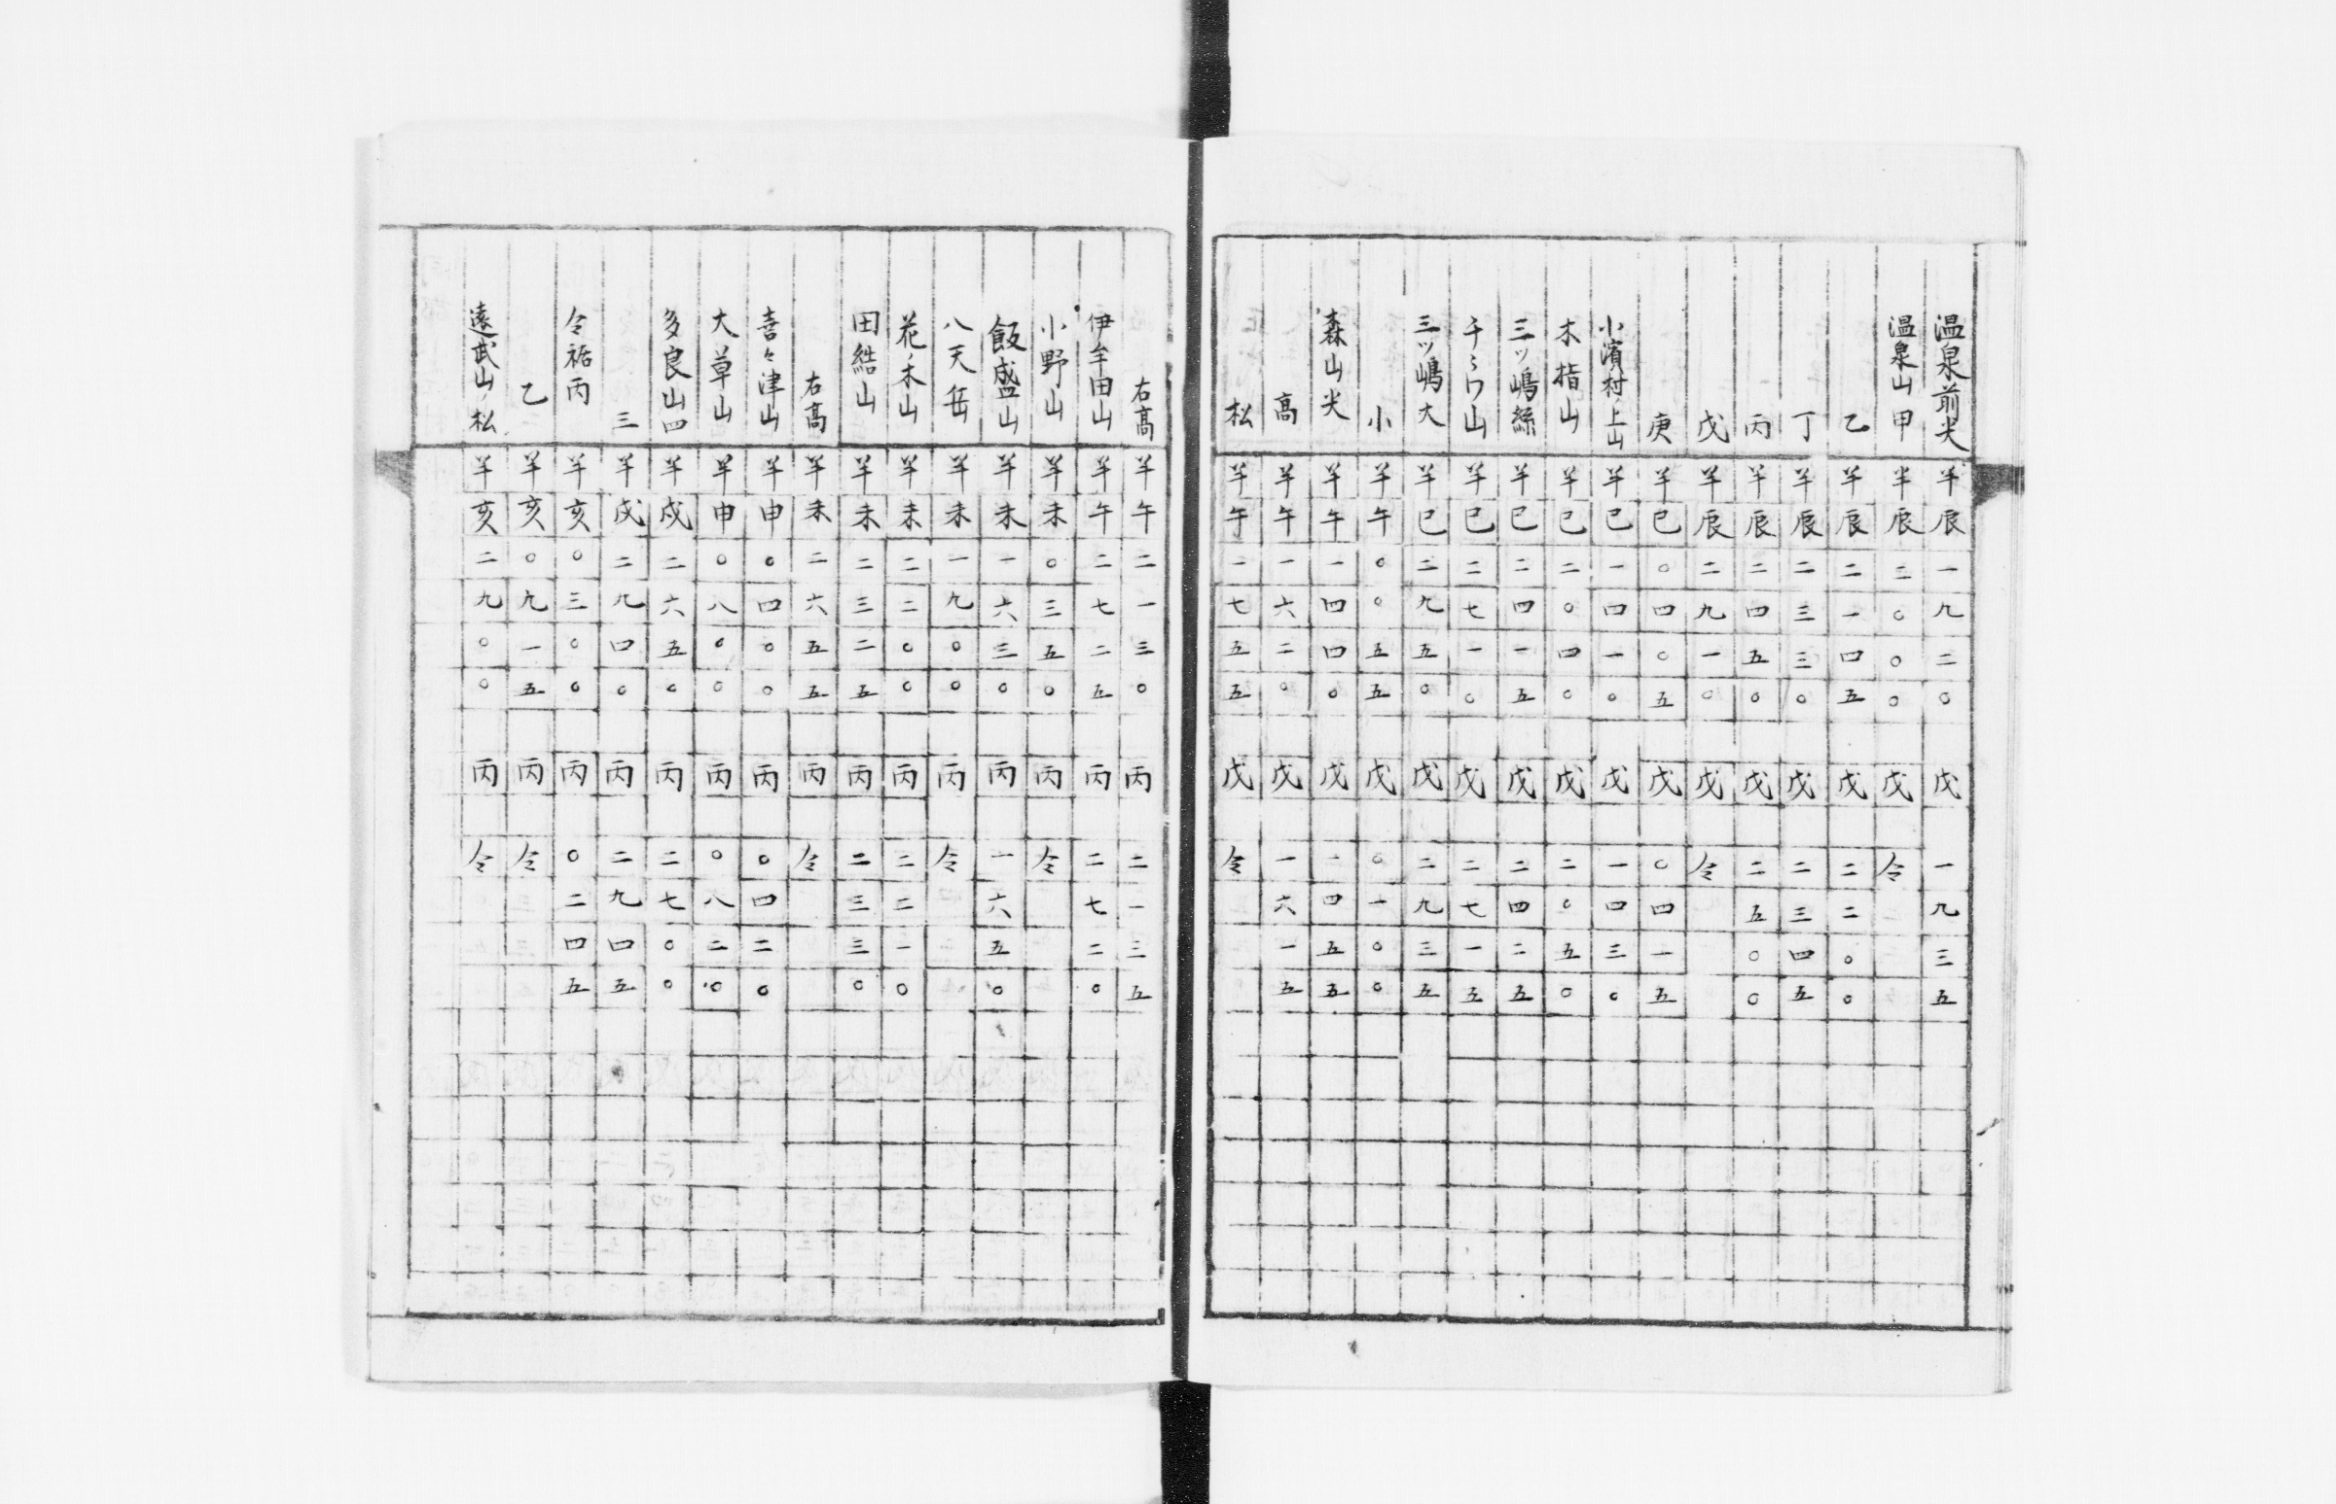 温泉前尖 半辰一九二〇 戊 一九三五
温泉山甲 半辰二〇〇〇 戊 仝
乙 半辰二一四五 戊 二二〇〇
丁 半辰二三三〇 戊 二三四五
丙 半辰二四五〇 戊 二五〇〇
戊 半辰二九一〇 戊 仝
庚 半巳〇四〇五 戊 〇四一五
小濱村ノ上山 半巳一四一〇 戊 一四三〇
木指山 半巳二〇四〇 戊 二〇五〇
三ツ嶋絲 半巳二四一五 戊 二四二五
千ミワ山 半巳二七一〇 戊 二七一五
三ツ嶋大 半巳二九五〇 戊 二九三五
小 半午〇〇五五 戊 〇一〇〇
森山尖 半午一四四〇 戊 一四五五
高 半午一六二〇 戊 一六一五
松 半午一七五五 戊 仝
右高 半午二一三〇 丙 二一三五
伊牟田山 半午二七二五 丙 二七二〇
小野山 半未〇三五〇 丙 仝
飯盛山 半未一六三〇 丙 一六五〇
八天岳 半未一九〇〇 丙 仝
花ノ木山 半未二二〇〇 丙 二二一〇
田結山 半未二三二五 丙 二三三〇
右高 半未二六五五 丙 仝
喜々津山 半申〇四〇〇 丙 〇四二〇
大草山 半申〇八〇〇 丙 〇八二〇
多良山四 半戌二六五〇 丙 二七〇〇
三 半戌二九四〇 丙 二九四五
令祐丙 半亥〇三〇〇 丙 〇二四五
乙 半亥〇九一五 丙 仝
遠武山ノ松 半亥二九〇〇 丙 仝